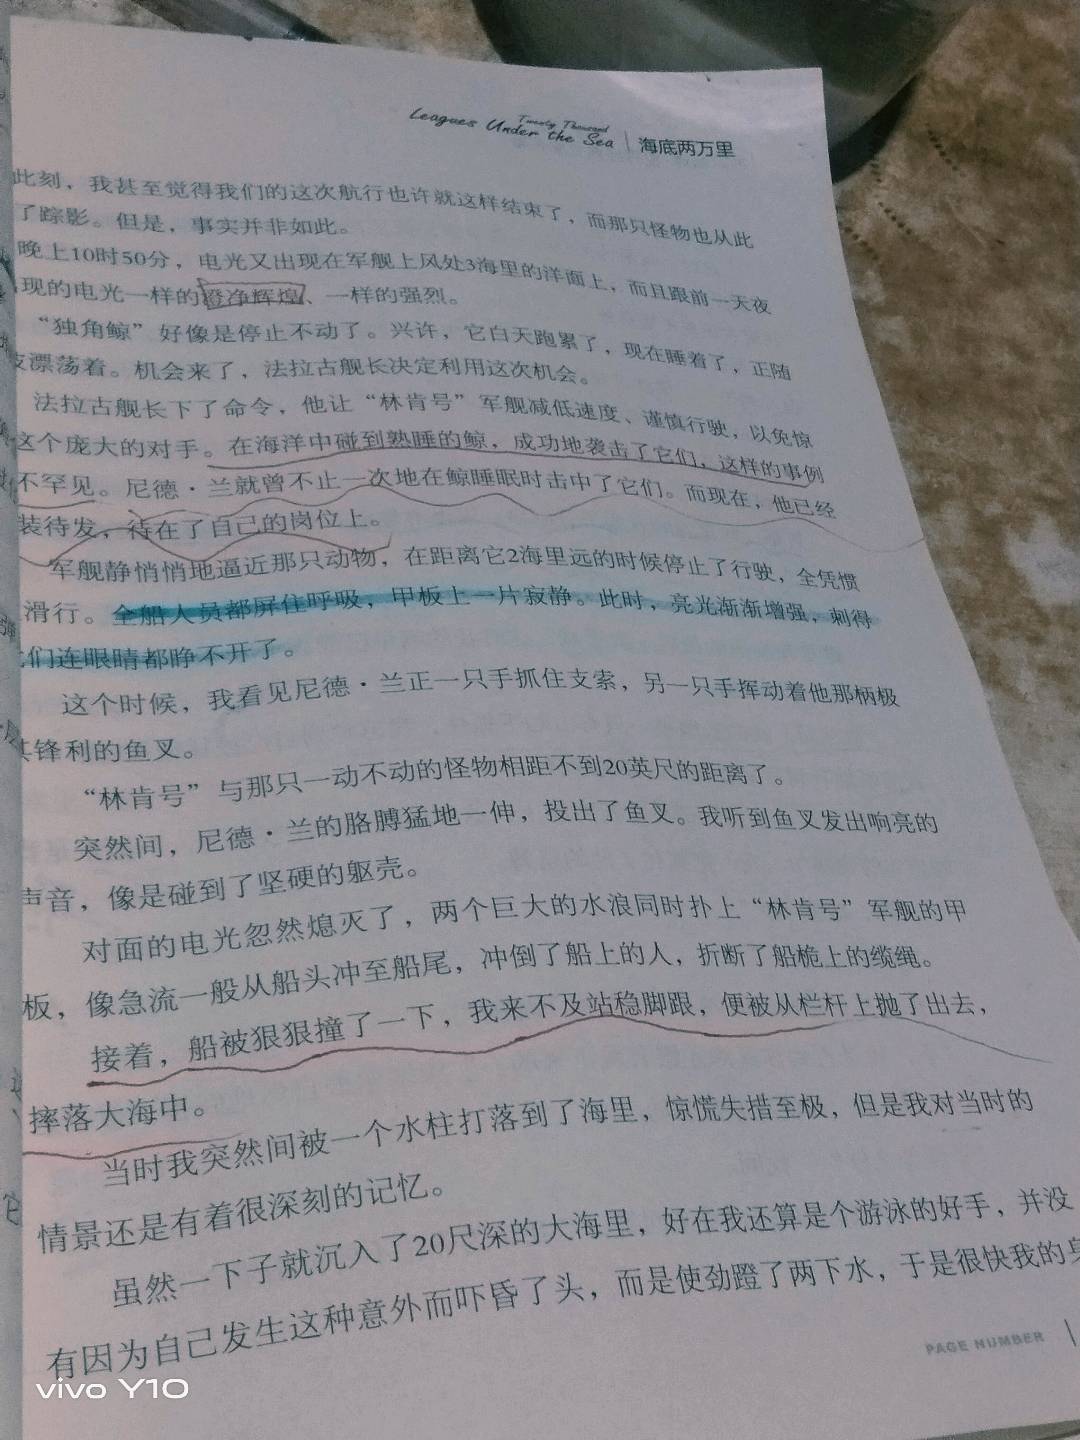 Twenty Thousand
Leagues Under the Sea | 海底两万里
此刻，我甚至觉得我们的这次航行也许就这样结束了，而那只怪物也从此
了踪影。但是，事实并非如此。
晚上10时50分，电光又出现在军舰上风处3海里的洋面上，而且跟前一天夜
现的电光一样的澄净辉煌、一样的强烈。
“独角鲸”好像是停止不动了。兴许，它白天跑累了，现在睡着了，正随
漂荡着。机会来了，法拉古舰长决定利用这次机会。
法拉古舰长下了命令，他让“林肯号”军舰减低速度、谨慎行驶，以免惊
这个庞大的对手。在海洋中碰到熟睡的鲸，成功地袭击了它们，这样的事例
不罕见。尼德·兰就曾不止一次地在鲸睡眠时击中了它们。而现在，他已经
装待发，待在了自己的岗位上。
军舰静悄悄地逼近那只动物，在距离它2海里远的时候停止了行驶，全凭惯
滑行。全船人员都屏住呼吸，甲板上一片寂静。此时，亮光渐渐增强，刺得
们连眼睛都睁不开了。
这个时候，我看见尼德·兰正一只手抓住支索，另一只手挥动着他那柄极
其锋利的鱼叉。
“林肯号”与那只一动不动的怪物相距不到20英尺的距离了。
突然间，尼德·兰的胳膊猛地一伸，投出了鱼叉。我听到鱼叉发出响亮的
声音，像是碰到了坚硬的躯壳。
对面的电光忽然熄灭了，两个巨大的水浪同时扑上“林肯号”军舰的甲
板，像急流一般从船头冲至船尾，冲倒了船上的人，折断了船桅上的缆绳。
接着，船被狠狠撞了一下，我来不及站稳脚跟，便被从栏杆上抛了出去，
摔落大海中。
当时我突然间被一个水柱打落到了海里，惊慌失措至极，但是我对当时的
情景还是有着很深刻的记忆。
虽然一下子就沉入了20尺深的大海里，好在我还算是个游泳的好手，并没
有因为自己发生这种意外而吓昏了头，而是使劲蹬了两下水，于是很快我的身
PAGE NUMBER |
vivo Y10